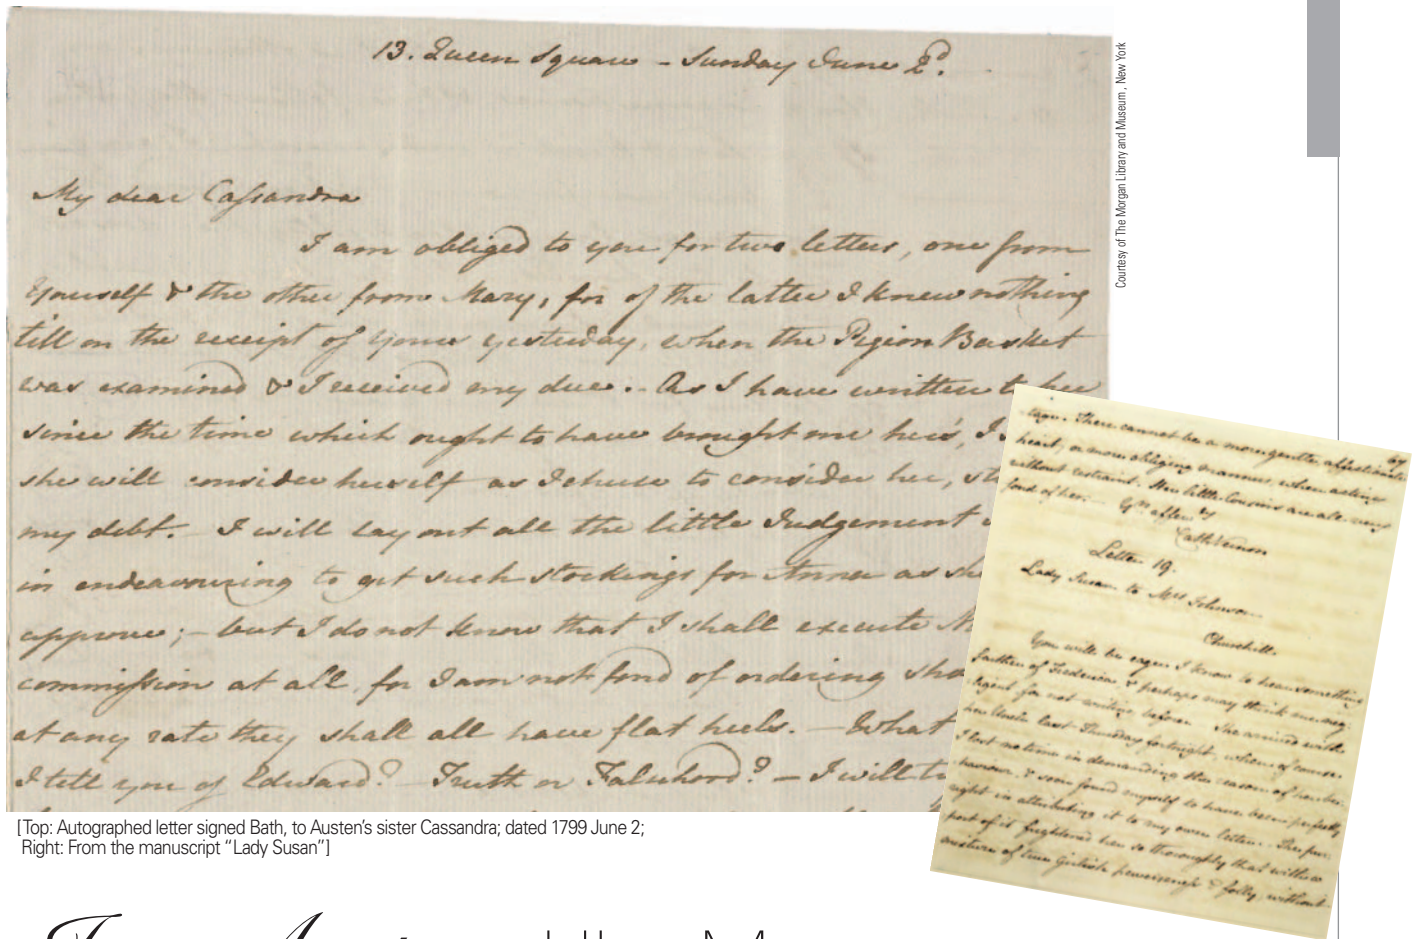 13. Queen Square - Sunday June 2.d
My dear Cassandra
I am obliged to you for two letters, one from
Yourself & the other from Mary, for of the latter I knew nothing
till on the receipt of Yours yesterday, when the Pigeon Basket
was examined & I received my due. - As I have written to her
since the time which ought to have brought me her's, I
she will consider herself as I chuse to consider her, still
my debt. - I will lay out all the little Judgement
in endeavouring to get such stockings for Anna as she
approve; - but I do not know that I shall execute
commission at all, for I am not fond of ordering
at any rate they shall all have flat heels. - What
I tell you of Edward? - Truth or Falsehood? - I will
Courtesy of The Morgan Library and Museum, New York
There cannot be a more gentle, affectionate
heart, or more obliging manners, when acting
without restraint. Her little Cousins are all very
fond of her.
Cath Vernon
Letter 19.
Lady Susan to Mrs Johnson
Churchill.
You will be eager I know to hear something
farther of Frederica, & perhaps may think me neg-
ligent for not writing before. She arrived with
her Uncle last Thursday fortnight, when of course
I lost no time in demanding the reason of her be-
haviour, & soon found myself to have been perfectly
right in attributing it to my own letter. The pur-
port of it frightened her so thoroughly that with a
mixture of true Girlish perverseness & folly, without
[Top: Autographed letter signed Bath, to Austen's sister Cassandra; dated 1799 June 2;
Right: From the manuscript “Lady Susan”]